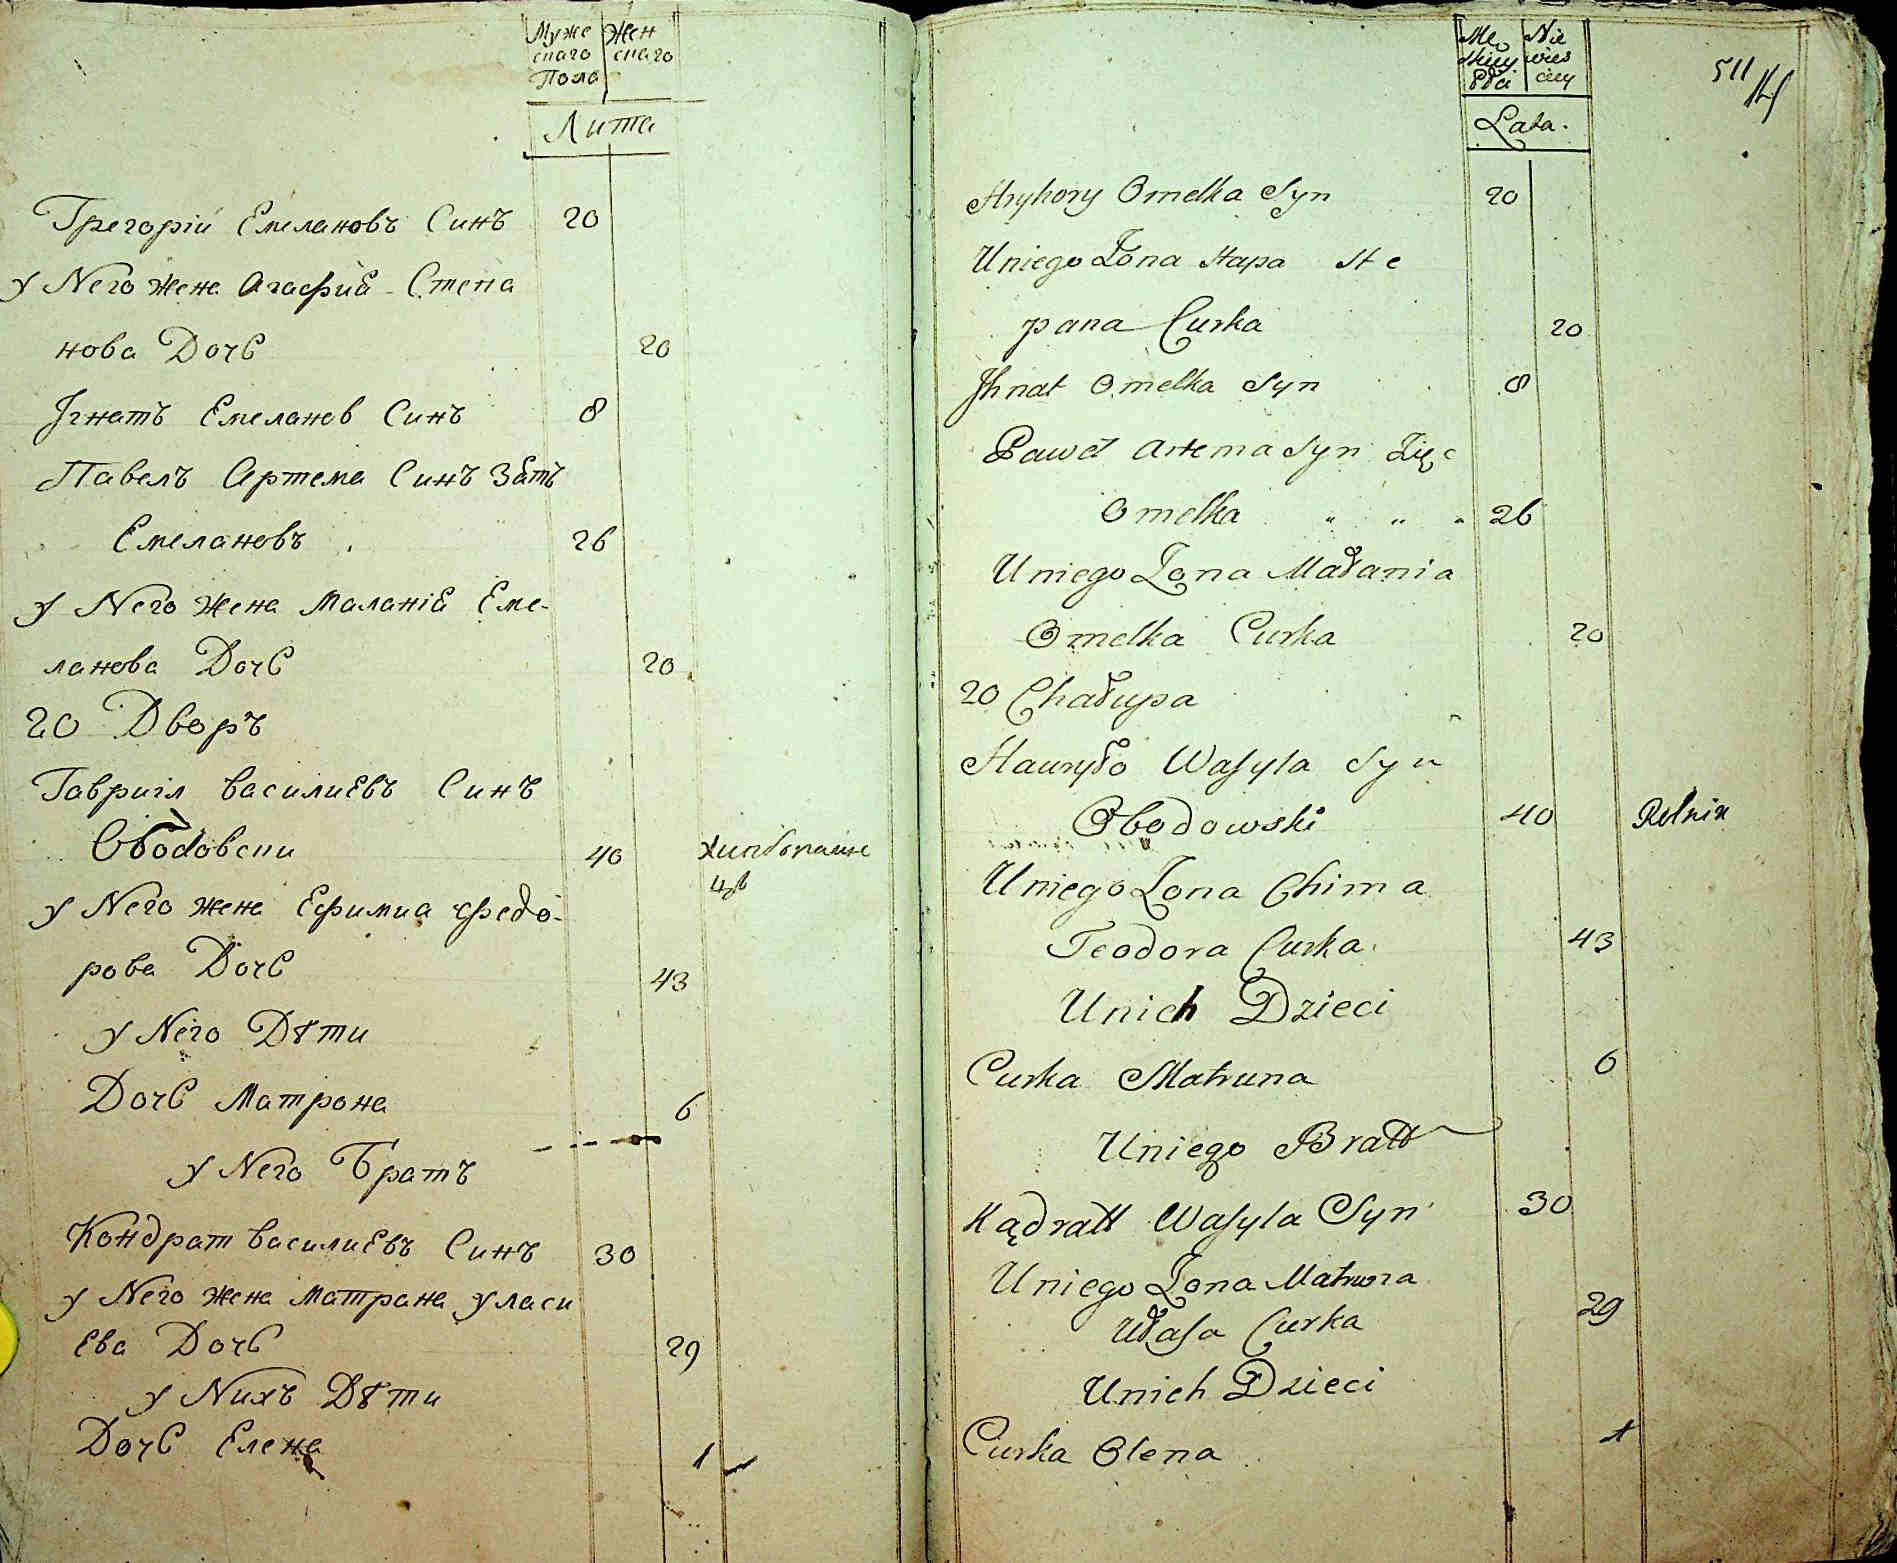 Муже Жен
скаго скаго
Пола
Лита
Грегорій Емелановъ Синъ 20
У Него жена Агафиѣ Степа
нова Дочь 20
Ігнатъ Емеланов Синъ 8
Павелъ Артема Синъ Зать
Емелановъ 26
У Него жена Маланіѣ Еме-
ланова Дочь 20
20 Дворъ
Гавриіл Василиевъ Синъ
Ободовски 40
У Него жена Ефимиа Федо-
рова Дочь 43
У Него Дѣти
Дочь Матрона 6
У Него Братъ
Кондрат Василиевъ Синъ 30
У Него жена Матрана Уласи
ева Дочь 29
У Нихъ Дѣти
Дочь Елена 1
Męskiey Niewiesciey
Płci
Lata.
511
Hryhory Omelka Syn 20
Uniego Żona Hapa Ste
pana Curka 20
Jhnat Omelka Syn 8
Paweł Artema Syn Zięc
Omelka " " " 26
Uniego Żona Małania
Omelka Curka 20
20 Chałupa
Hawryło Wasyla Syn
Obodowski 40 Rolnik
Uniego Żona Chima
Teodora Curka 43
Unich Dzieci
Curka Matruna 6
Uniego Bratt
Kądratt Wasyla Syn 30
Uniego Żona Matruna
Ułasa Curka 29
Unich Dzieci
Curka Olena 1